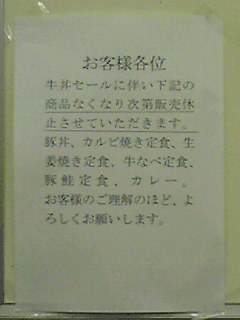 お客様各位
牛丼セールに伴い下記の
商品なくなり次第販売休
止させていただきます。
豚丼、カルビ焼き定食、生
姜焼き定食、牛なべ定食、
豚鮭定食、カレー。
お客様のご理解のほど、よ
ろしくお願いします。